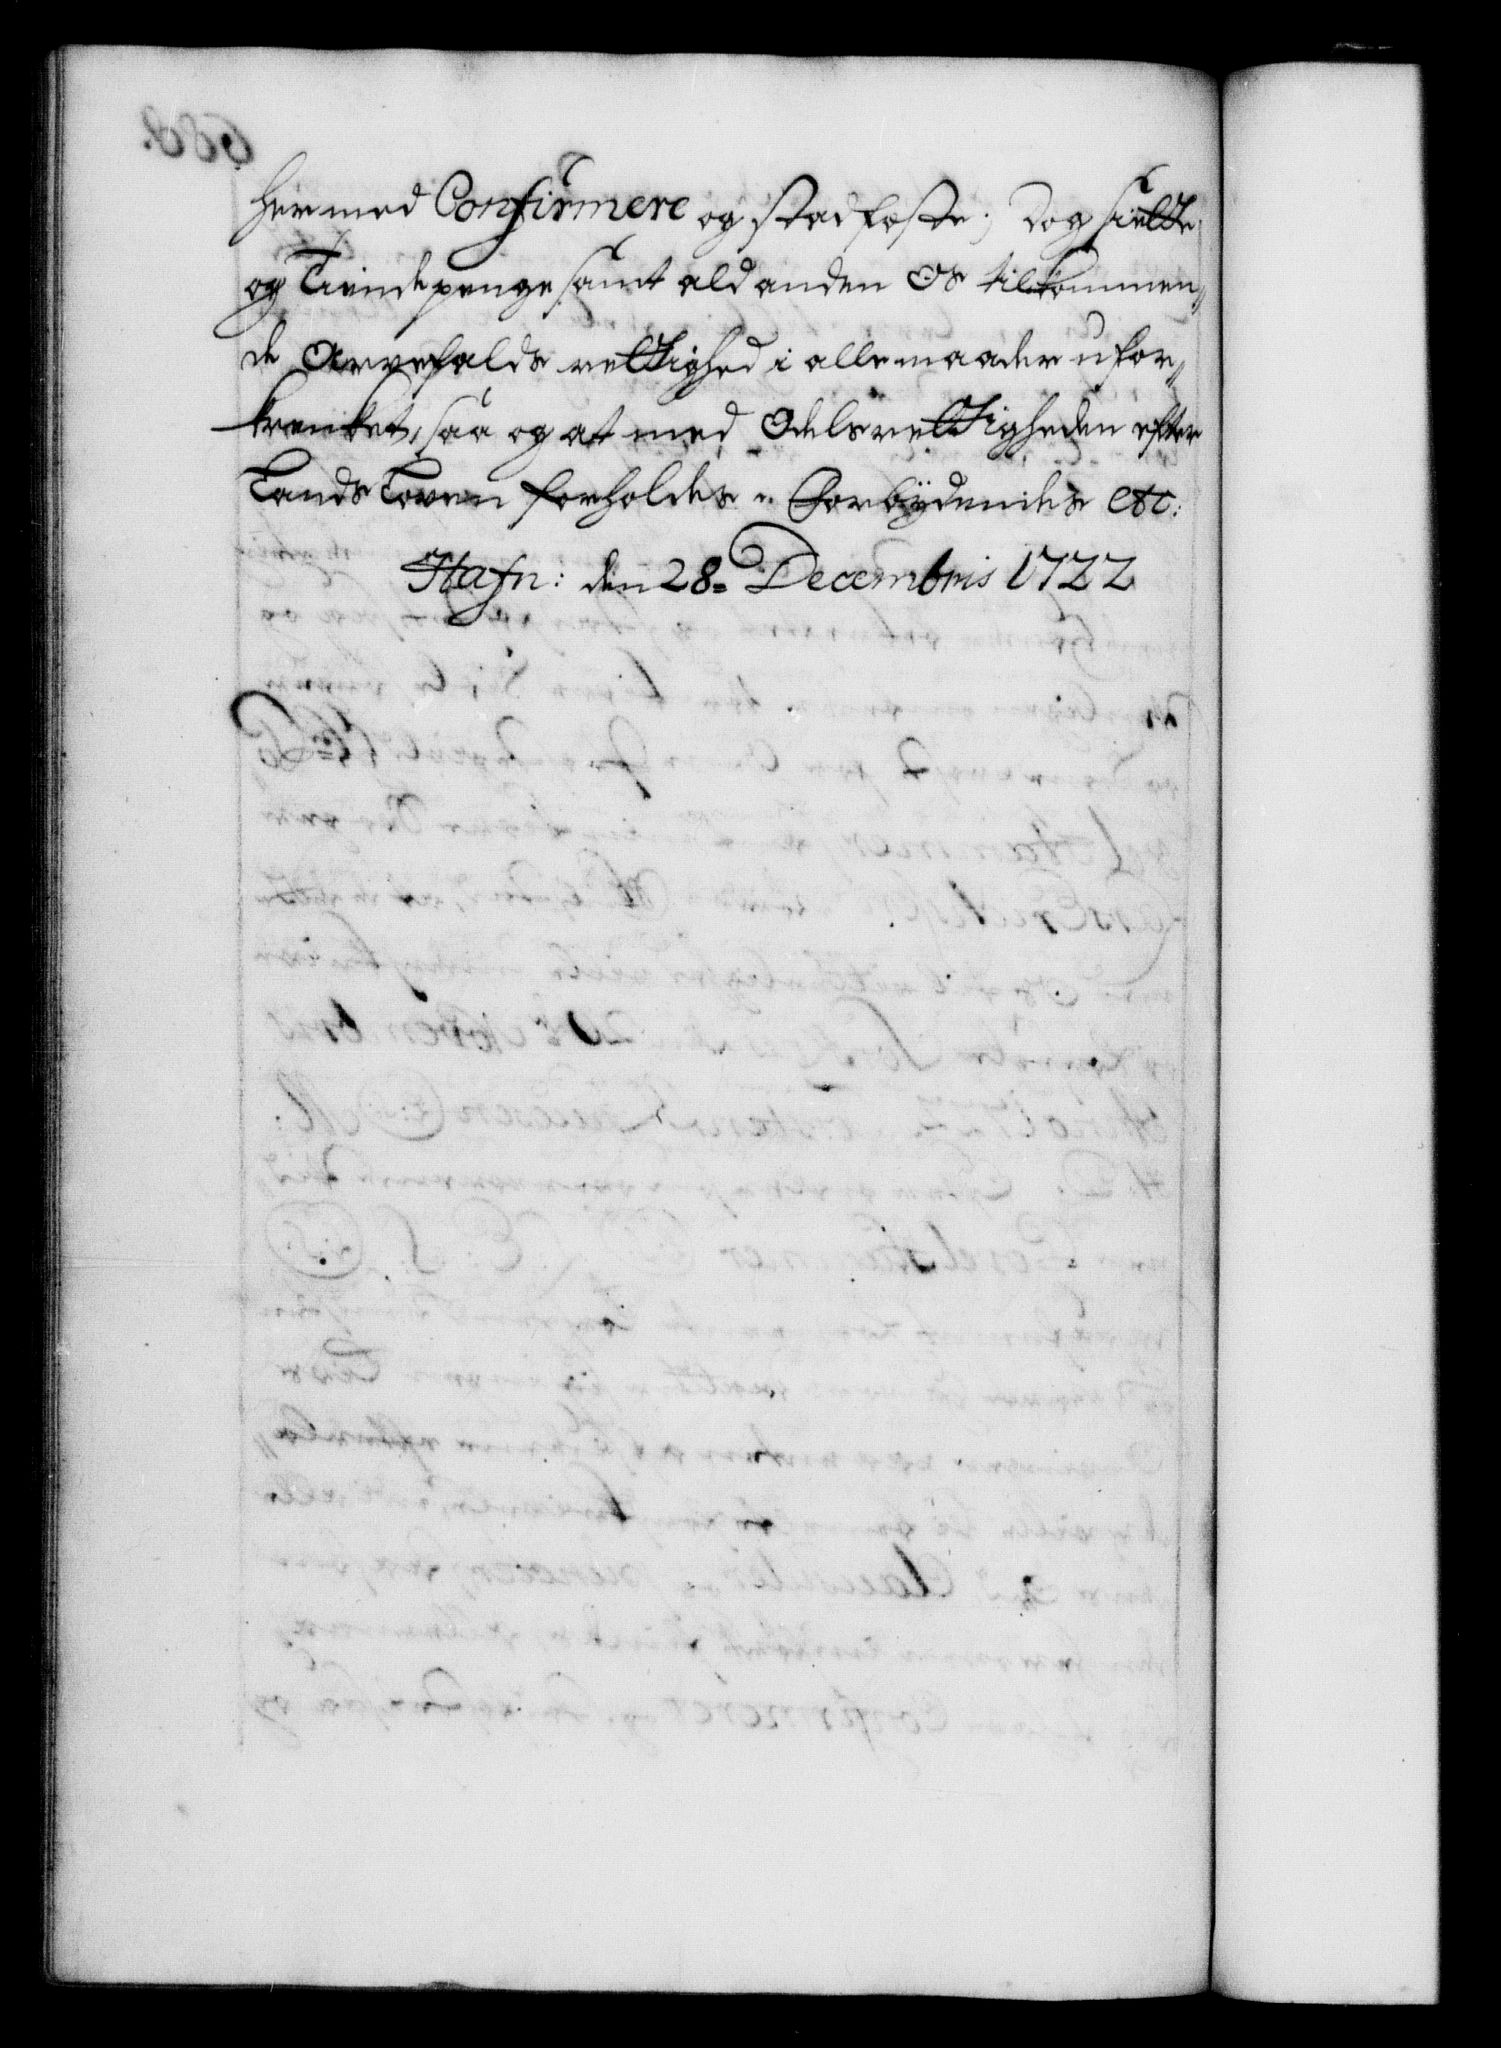 her med Confirmere og stadfæste; Dog siette
og Tiende penge samt ald anden Os tilkommen„
de Arvefalds rettighed i alle maader ufor„
krenket, saa og at med Odels rettigheden efter
Lands Loven forholdes. Forbÿdendes etc:
Hafn: den 28= Decembris 1722